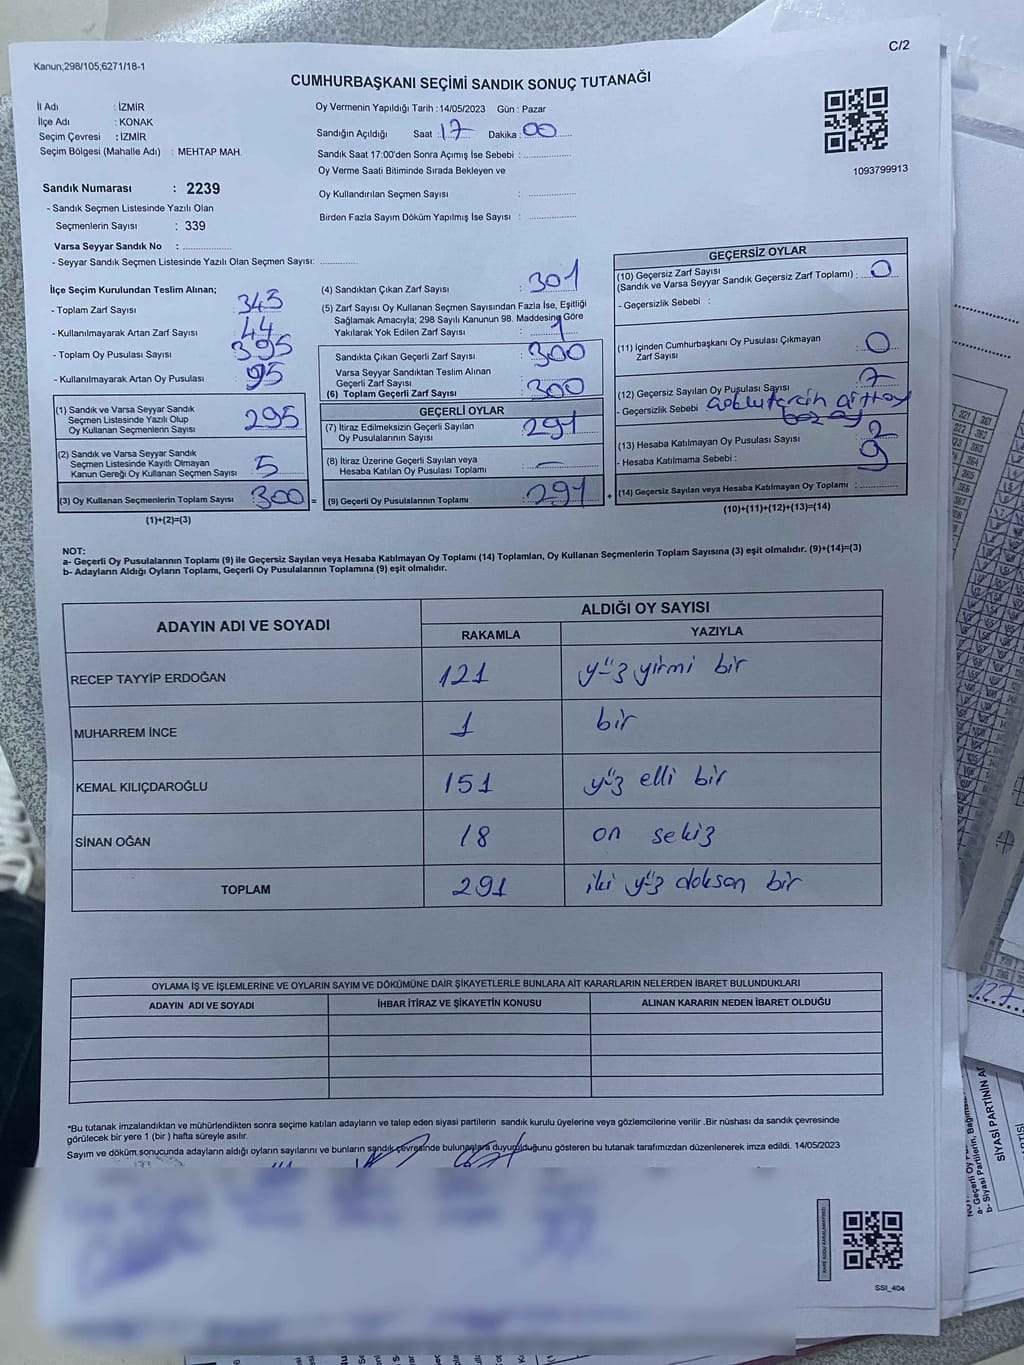 C/2
Kanun;298/105;6271/18-1
CUMHURBAŞKANI SEÇİMİ SANDIK SONUÇ TUTANAĞI
İl Adı : İZMİR
İlçe Adı : KONAK
Seçim Çevresi : İZMİR
Seçim Bölgesi (Mahalle Adı) : MEHTAP MAH.
Sandık Numarası : 2239
- Sandık Seçmen Listesinde Yazılı Olan
Seçmenlerin Sayısı : 339
Varsa Seyyar Sandık No :
- Seyyar Sandık Seçmen Listesinde Yazılı Olan Seçmen Sayısı:
Oy Vermenin Yapıldığı Tarih :14/05/2023 Gün : Pazar
Sandığın Açıldığı Saat : 17 Dakika : 00
Sandık Saat 17:00'den Sonra Açımış İse Sebebi :
Oy Verme Saati Bitiminde Sırada Bekleyen ve
Oy Kullandırılan Seçmen Sayısı :
Birden Fazla Sayım Döküm Yapılmış İse Sayısı :
1093799913
İlçe Seçim Kurulundan Teslim Alınan;
- Toplam Zarf Sayısı 345
- Kullanılmayarak Artan Zarf Sayısı 44
- Toplam Oy Pusulası Sayısı 395
- Kullanılmayarak Artan Oy Pusulası 95
(1) Sandık ve Varsa Seyyar Sandık
Seçmen Listesinde Yazılı Olup
Oy Kullanan Seçmenlerin Sayısı 295
(2) Sandık ve Varsa Seyyar Sandık
Seçmen Listesinde Kayıtlı Olmayan
Kanun Gereği Oy Kullanan Seçmen Sayısı 5
(3) Oy Kullanan Seçmenlerin Toplam Sayısı 300 =
(1)+(2)=(3)
(4) Sandıktan Çıkan Zarf Sayısı : 301
(5) Zarf Sayısı Oy Kullanan Seçmen Sayısından Fazla İse, Eşitliği
Sağlamak Amacıyla; 298 Sayılı Kanunun 98. Maddesine Göre
Yakılarak Yok Edilen Zarf Sayısı : 1
Sandıkta Çıkan Geçerli Zarf Sayısı : 300
Varsa Seyyar Sandıktan Teslim Alınan
Geçerli Zarf Sayısı
(6) Toplam Geçerli Zarf Sayısı : 300
GEÇERLİ OYLAR
(7) İtiraz Edilmeksizin Geçerli Sayılan
Oy Pusulalarının Sayısı : 291
(8) İtiraz Üzerine Geçerli Sayılan veya
Hesaba Katılan Oy Pusulası Toplamı : —
(9) Geçerli Oy Pusulalarının Toplamı : 291 +
GEÇERSİZ OYLAR
(10) Geçersiz Zarf Sayısı
(Sandık ve Varsa Seyyar Sandık Geçersiz Zarf Toplamı) : 0
- Geçersizlik Sebebi :
(11) İçinden Cumhurbaşkanı Oy Pusulası Çıkmayan
Zarf Sayısı : 0
(12) Geçersiz Sayılan Oy Pusulası Sayısı 7
- Geçersizlik Sebebi
(13) Hesaba Katılmayan Oy Pusulası Sayısı 2
- Hesaba Katılmama Sebebi : 9
(14) Geçersiz Sayılan veya Hesaba Katılmayan Oy Toplamı :
(10)+(11)+(12)+(13)=(14)
NOT:
a- Geçerli Oy Pusulalarının Toplamı (9) ile Geçersiz Sayılan veya Hesaba Katılmayan Oy Toplamı (14) Toplamları, Oy Kullanan Seçmenlerin Toplam Sayısına (3) eşit olmalıdır. (9)+(14)=(3)
b- Adayların Aldığı Oyların Toplamı, Geçerli Oy Pusulalarının Toplamına (9) eşit olmalıdır.
ADAYIN ADI VE SOYADI ALDIĞI OY SAYISI
RAKAMLA YAZIYLA
RECEP TAYYİP ERDOĞAN 121 yüz yirmi bir
MUHARREM İNCE 1 bir
KEMAL KILIÇDAROĞLU 151 yüz elli bir
SİNAN OĞAN 18 on sekiz
TOPLAM 291 iki yüz doksan bir
OYLAMA İŞ VE İŞLEMLERİNE VE OYLARIN SAYIM VE DÖKÜMÜNE DAİR ŞİKAYETLERLE BUNLARA AİT KARARLARIN NELERDEN İBARET BULUNDUKLARI
ADAYIN ADI VE SOYADI İHBAR İTİRAZ VE ŞİKAYETİN KONUSU ALINAN KARARIN NEDEN İBARET OLDUĞU
*Bu tutanak imzalandıktan ve mühürlendikten sonra seçime katılan adayların ve talep eden siyasi partilerin sandık kurulu üyelerine veya gözlemcilerine verilir .Bir nüshası da sandık çevresinde
görülecek bir yere 1 (bir ) hafta süreyle asılır.
Sayım ve döküm sonucunda adayların aldığı oyların sayılarını ve bunların sandık çevresinde bulunanlara duyurulduğunu gösteren bu tutanak tarafımızdan düzenlenerek imza edildi. 14/05/2023
SSİ_404
127
SİYASİ PARTİNİN